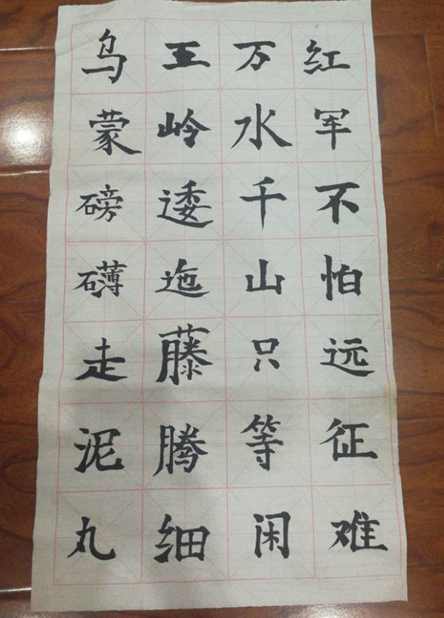 红军不怕远征难
万水千山只等闲
五岭逶迤藤腾细
乌蒙磅礴走泥丸